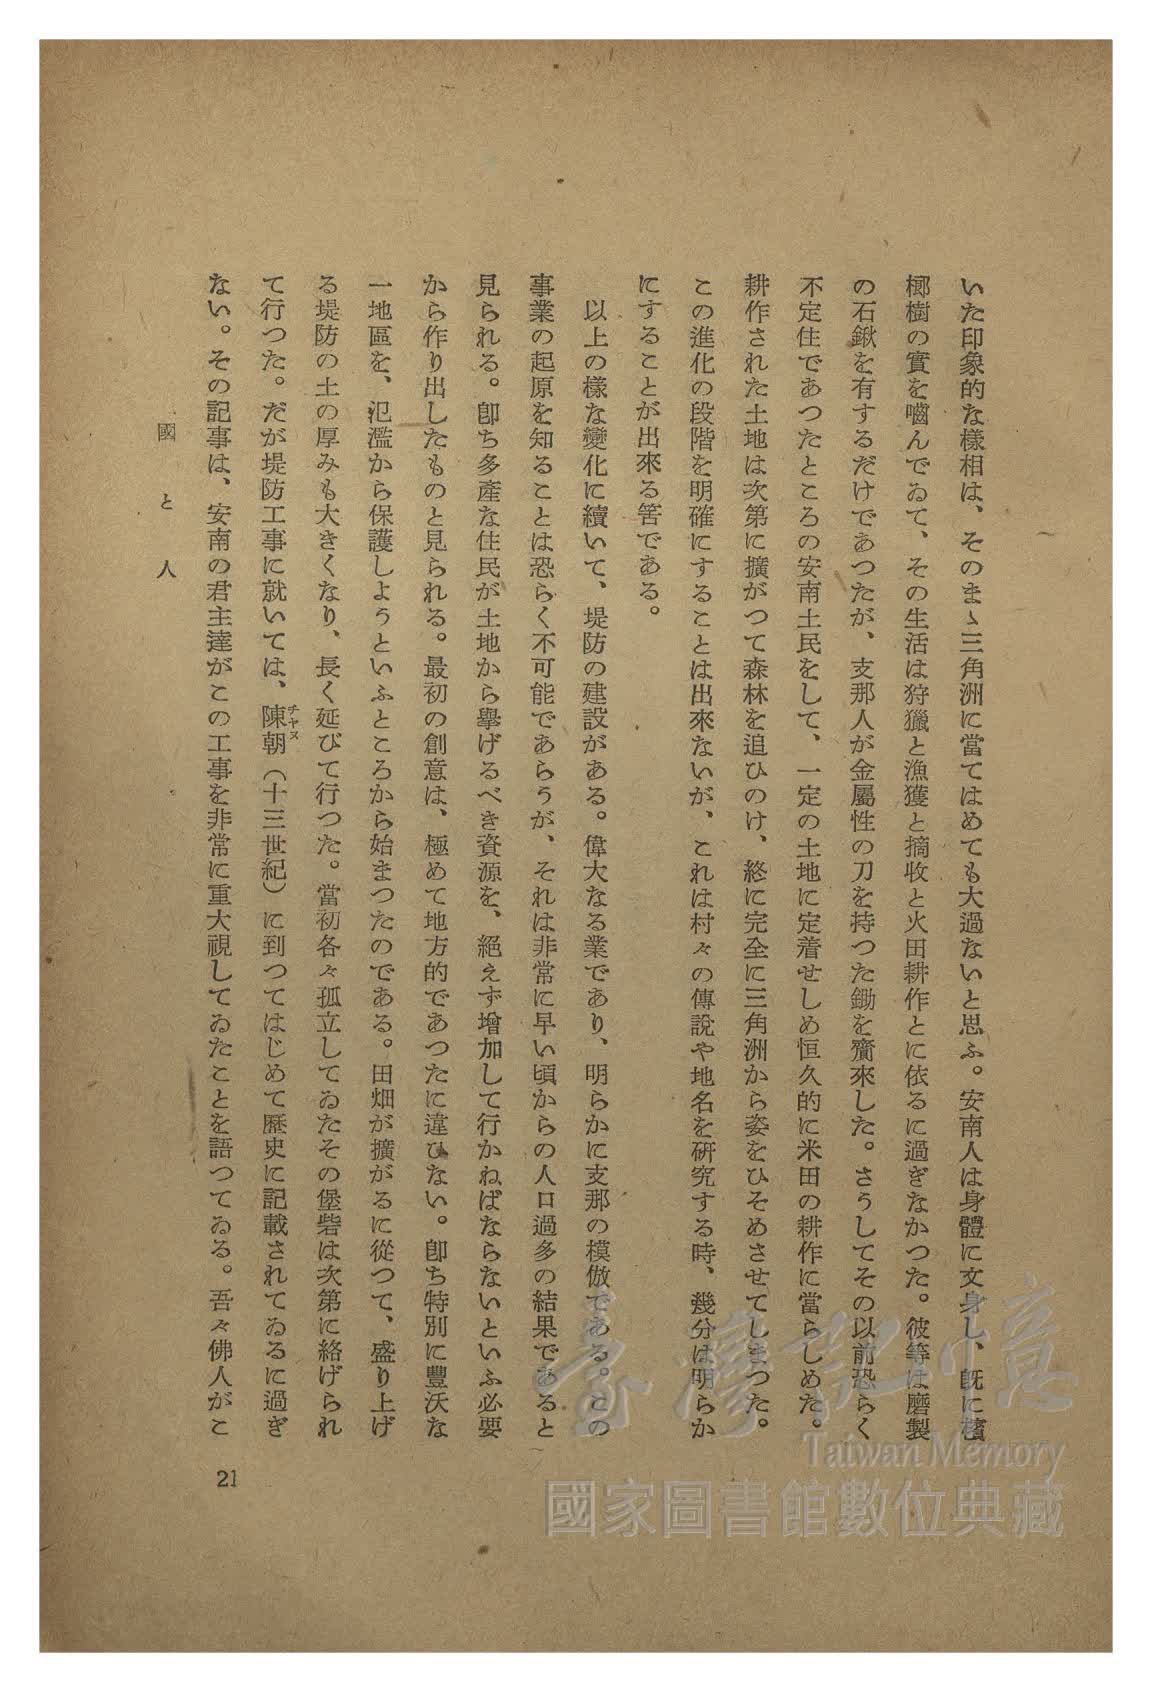 いた印象的な樣相は、そのまゝ三角洲に當てはめても大過ないと思ふ。安南人は身體に文身し、既に檳
榔樹の實を嚙んでゐて、その生活は狩獵と漁獲と摘收と火田耕作とに依るに過ぎなかつた。彼等は磨製
の石鍬を有するだけであつたが、支那人が金屬性の刀を持つた鋤を齎來した。さうしてその以前恐らく
不定住であつたところの安南土民をして、一定の土地に定着せしめ恒久的に米田の耕作に當らしめた。
耕作された土地は次第に擴がつて森林を追ひのけ、終に完全に三角洲から姿をひそめさせてしまつた。
この進化の段階を明確にすることは出來ないが、これは村々の傳說や地名を研究する時、幾分は明らか
にすることが出來る筈である。
以上の樣な變化に續いて、堤防の建設がある。偉大なる業であり、明らかに支那の模倣である。この
事業の起原を知ることは恐らく不可能であらうが、それは非常に早い頃からの人口過多の結果であると
見られる。卽ち多產な住民が土地から擧げるべき資源を、絕えず增加して行かねばならないといふ必要
から作り出したものと見られる。最初の創意は、極めて地方的であつたに違ひない。卽ち特別に豐沃な
一地區を、氾濫から保護しようといふところから始まつたのである。田畑が擴がるに從つて、盛り上げ
る堤防の土の厚みも大きくなり、長く延びて行つた。當初各々孤立してゐたその堡砦は次第に絡げられ
て行つた。だが堤防工事に就いては、陳朝（十三世紀）に到つてはじめて歷史に記載されてゐるに過ぎ
チヤヌ
ない。その記事は、安南の君主達がこの工事を非常に重大視してゐたことを語つてゐる。吾々佛人がこ
國と人
21
臺灣記憶
Taiwan Memory
國家圖書館數位典藏